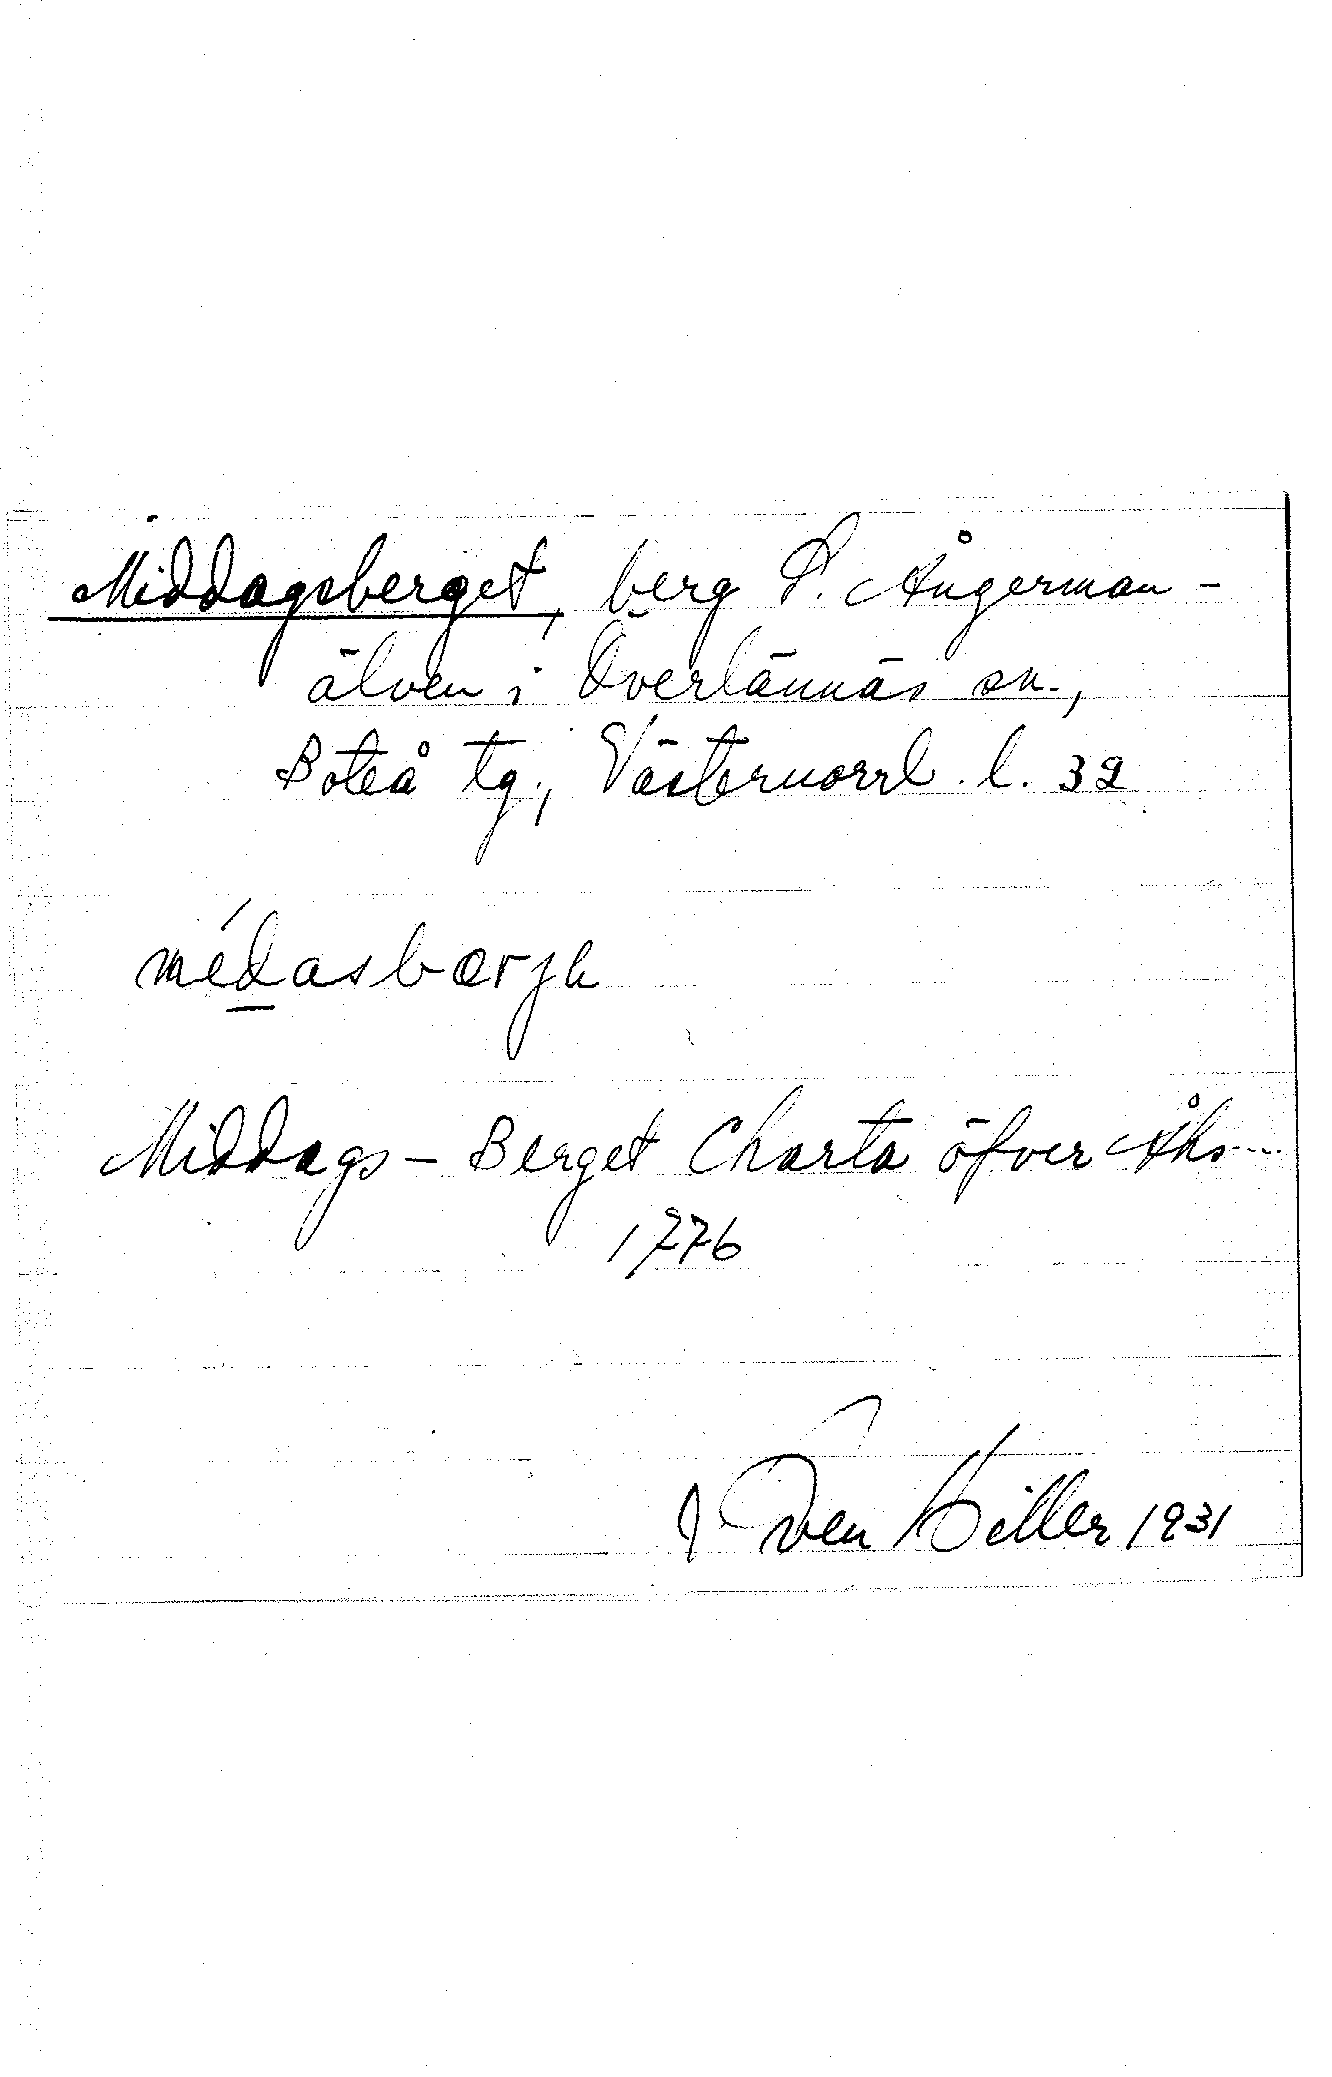 Middagsberget, berg S. Ångerman-
älven i Överlännäs sn.,
Boteå tg., Västernorrl. l. 32
médasbærjh
Middags-Berget Charta öfver Åhs...
1776
Sven Hiller 1931